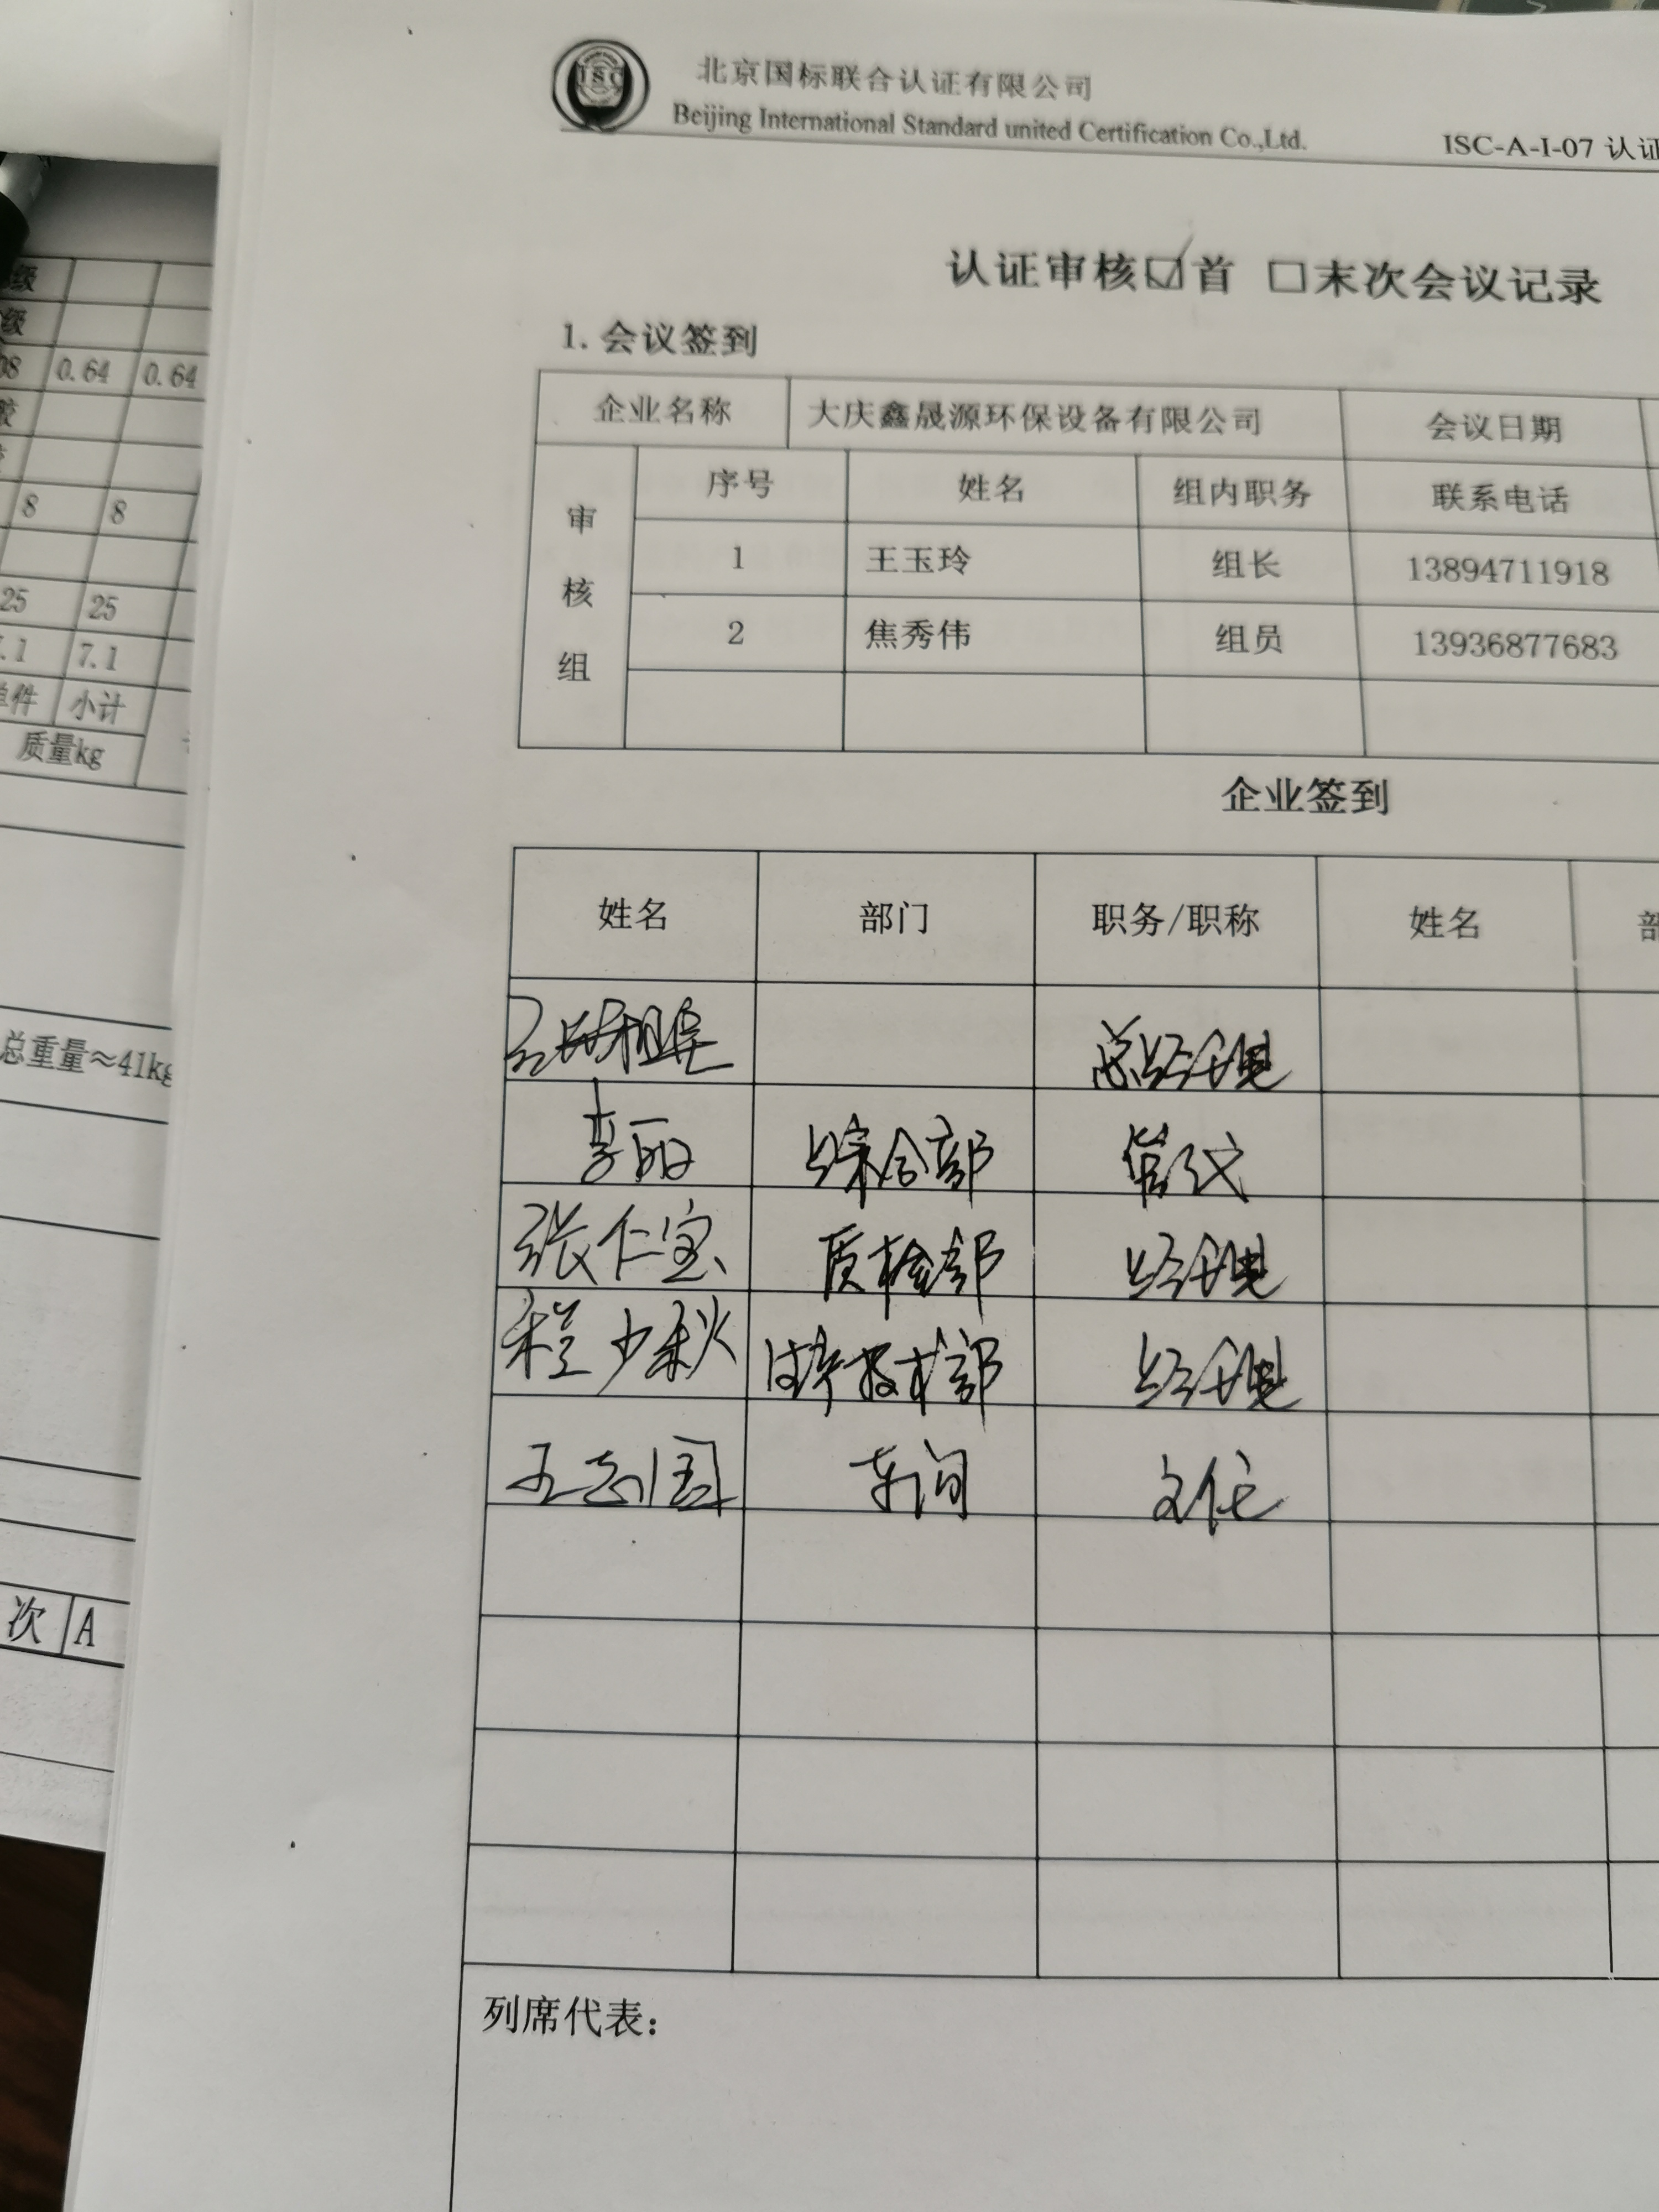 北京国标联合认证有限公司
Beijing International Standard united Certification Co.,Ltd.
ISC-A-I-07 认证
认证审核☑首 □末次会议记录
1. 会议签到
企业名称 大庆鑫晟源环保设备有限公司 会议日期
审核组 序号 姓名 组内职务 联系电话
1 王玉玲 组长 13894711918
2 焦秀伟 组员 13936877683
企业签到
姓名 部门 职务/职称 姓名 部
总经理
李丽 综合部 管代
张仁宝 质检部 经理
程少秋 技术部 经理
王志国 车间 主任
列席代表：
级
级
08 0.64 0.64
8 8
25 25
7.1 7.1
单件 小计
质量kg
总重量≈41kg
次 A